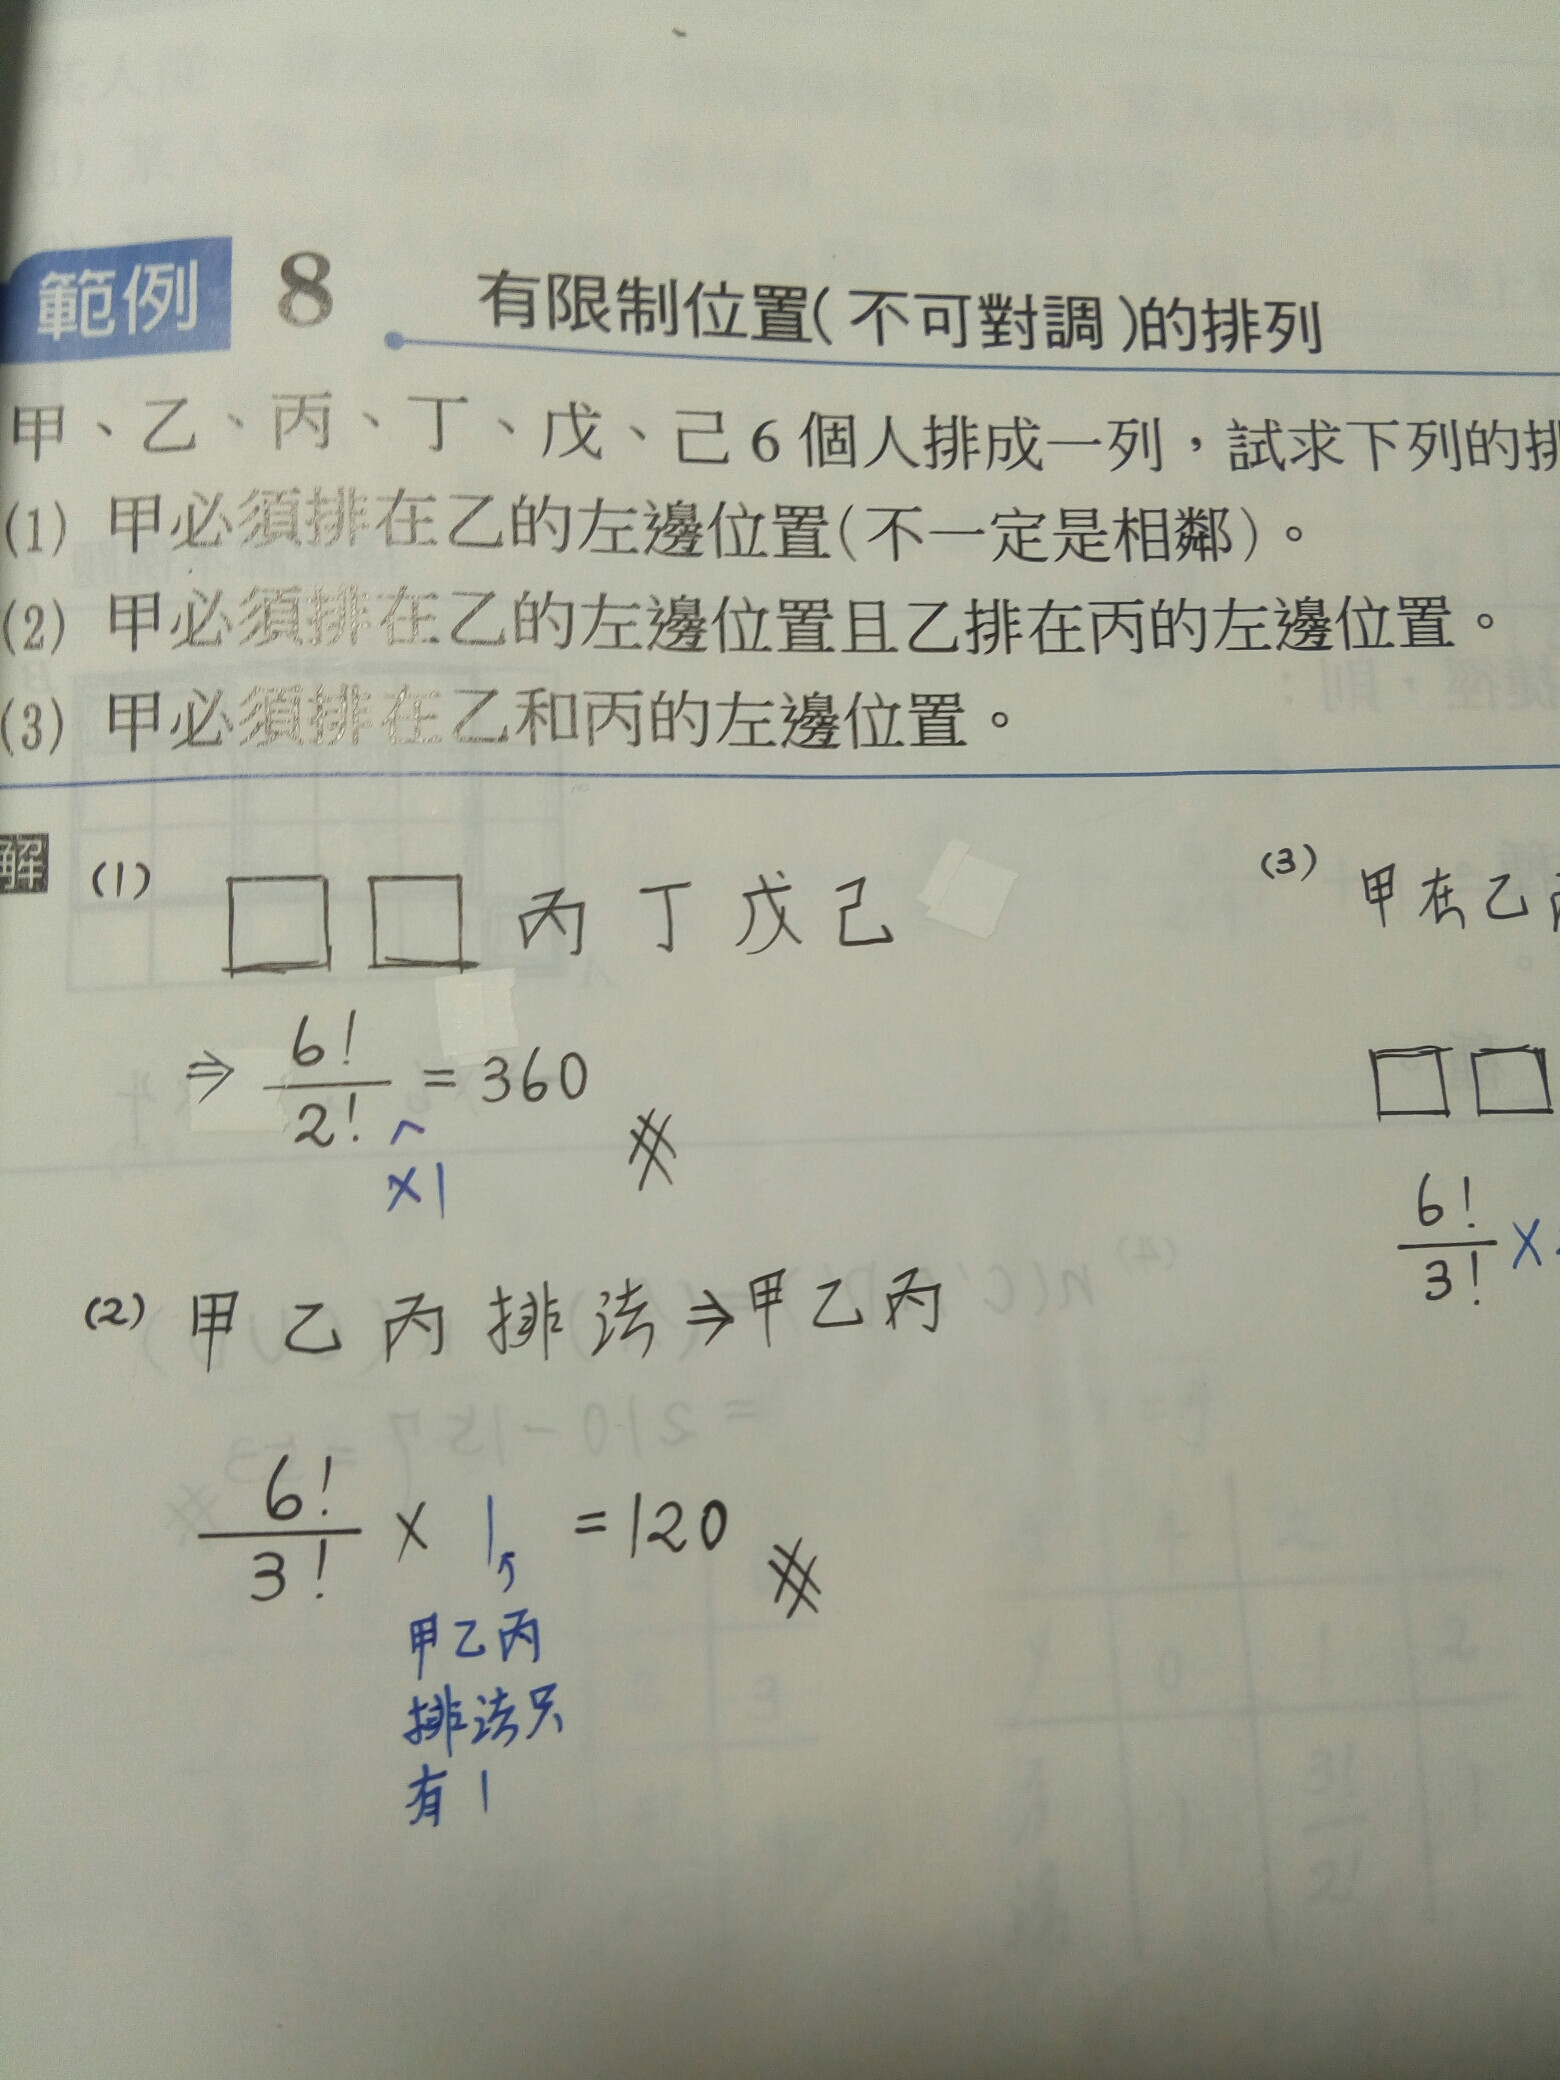 範例 8 有限制位置(不可對調)的排列
甲、乙、丙、丁、戊、己6個人排成一列，試求下列的排
(1) 甲必須排在乙的左邊位置(不一定是相鄰)。
(2) 甲必須排在乙的左邊位置且乙排在丙的左邊位置。
(3) 甲必須排在乙和丙的左邊位置。
解 (1) □ □ 丙 丁 戊 己
⇒ 6!/2! = 360
×1
(2) 甲 乙 丙 排 法 ⇒ 甲 乙 丙
6!/3! × 1 = 120
甲乙丙
排法只
有 1
(3) 甲在乙
□ □
6!/3! ×